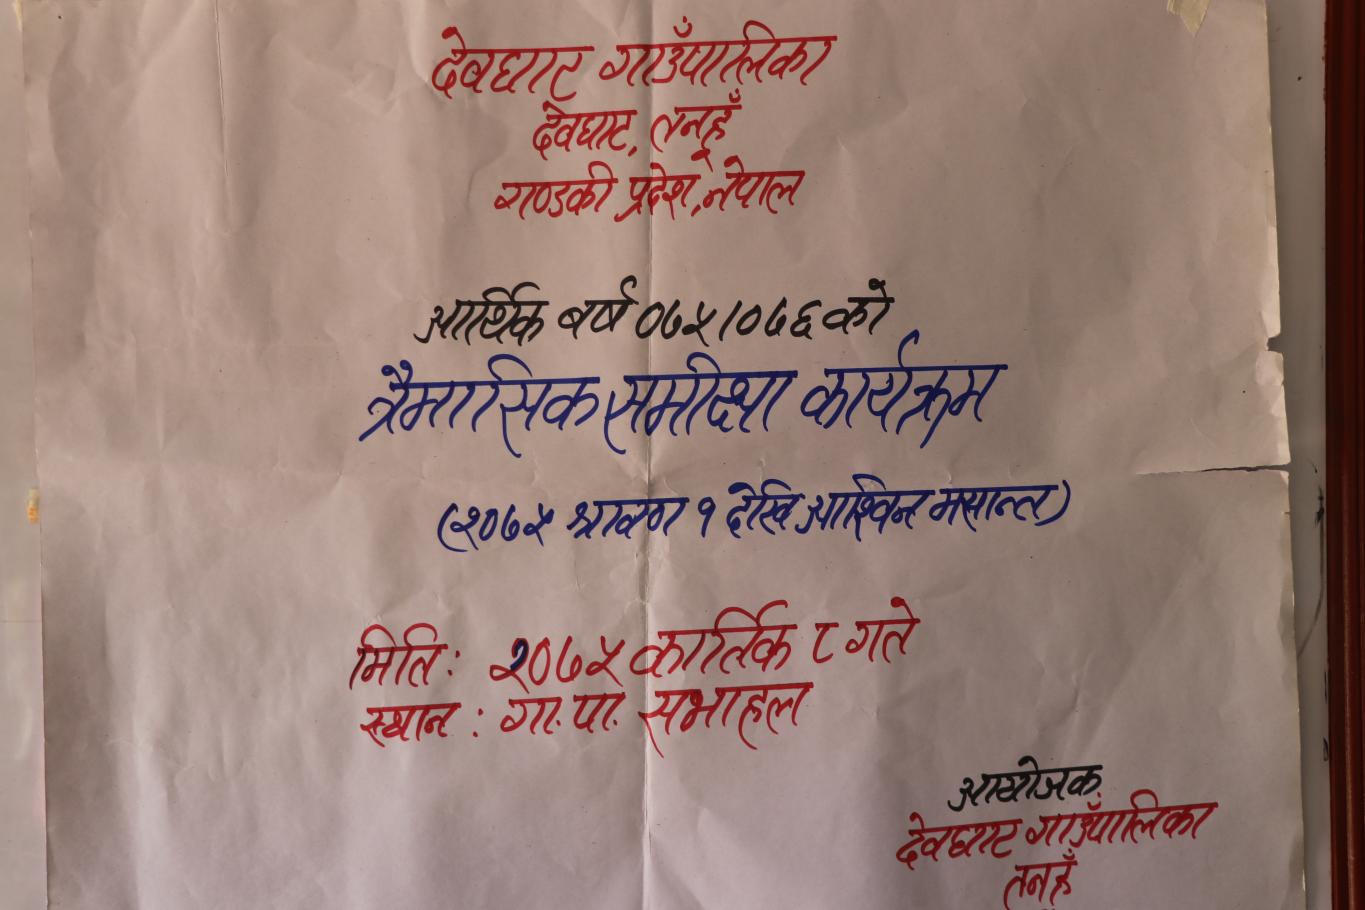 देवघाट गाउँपालिका
देवघाट, तनहूँ
गण्डकी प्रदेश, नेपाल
आर्थिक बर्ष ०७५।०७६ को
त्रैमासिक समीक्षा कार्यक्रम
(२०७५ श्रावण १ देखि आश्विन मसान्त)
मिति: २०७५ कार्तिक ८ गते
स्थान: गा.पा. सभाहल
आयोजक
देवघाट गाउँपालिका
तनहूँ